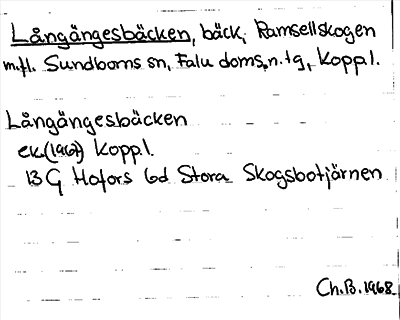 Långängesbäcken, bäck, Ramsellskogen
m.fl. Sundborns sn, Falu doms.n.tg, Koppl.
Långängesbäcken
ek.(1967) Koppl.
13 G Hofors 6d Stora Skogsbotjärnen
Ch.B. 1968